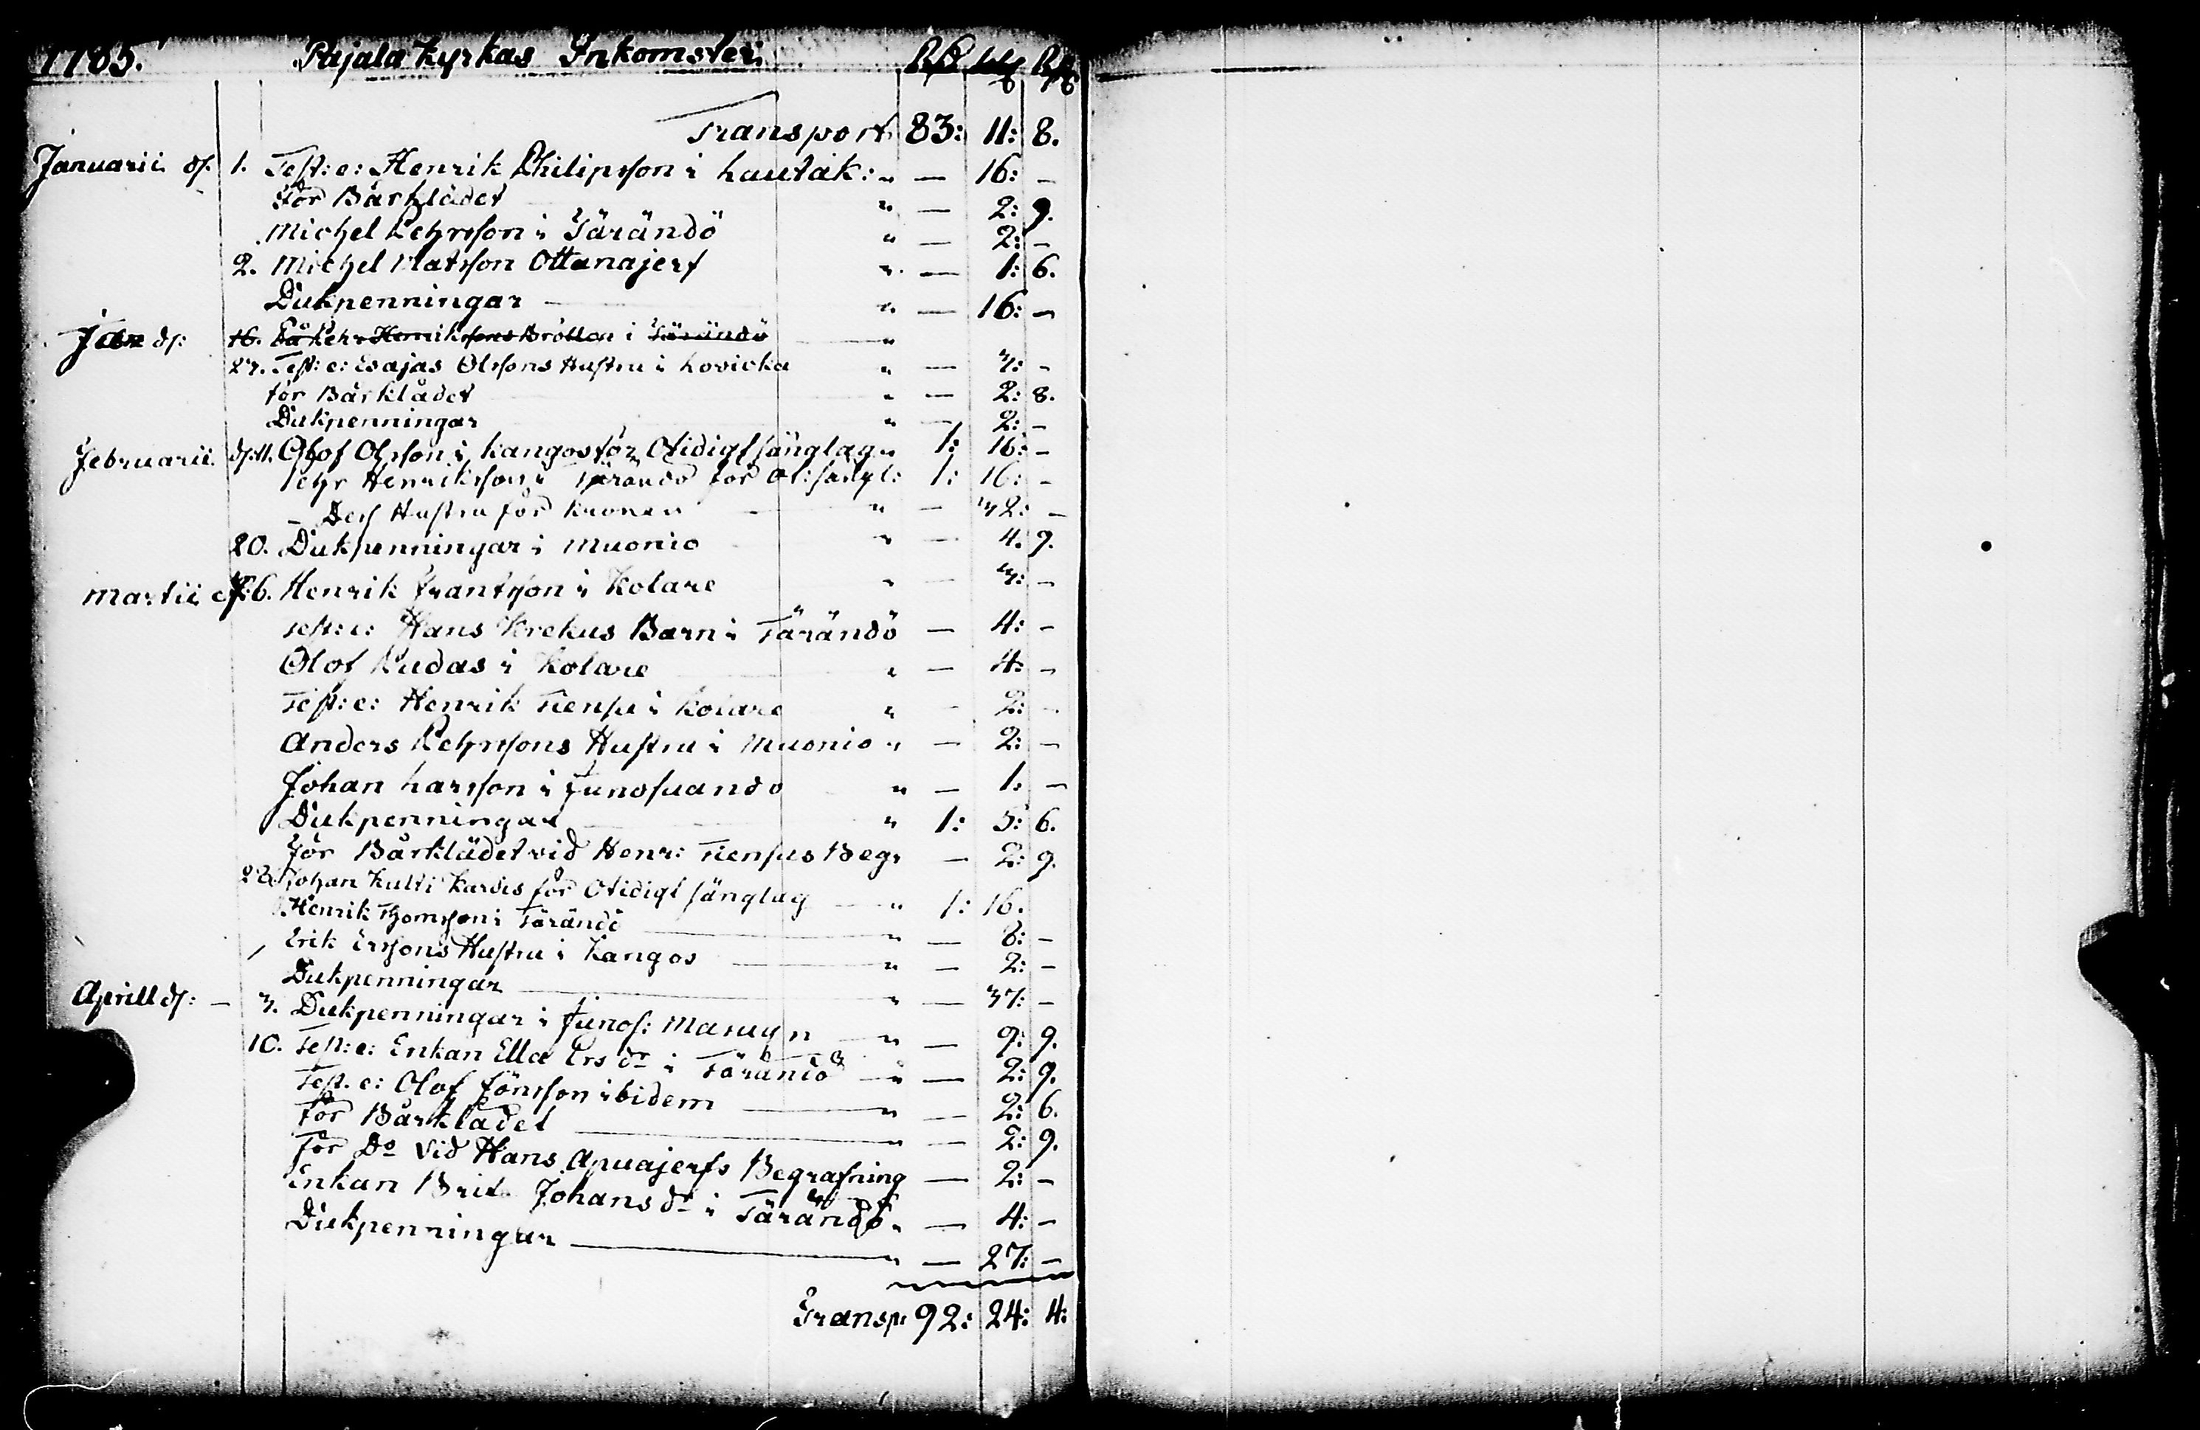 1785. Pajala Kyrkas Inkomster. Rd sk Rst
Transport 83: 11: 8.
Januarii d. 1. Test:e: Henrik Philipsson i Lautak: " — 16: —
för Bårklädet " — 2: 9.
Michel Pehrsson i Tärändö " — 2: —
2. Michel Matsson Ottanajerf " — 1: 6.
Dukpenningar " — 16: —
Jan d: 16. På Pehr Henriksons Bröllon i Tärändö "
27. Test:e: Esajas Olssons Hustru i Lovicka " — 3: —
för Bårklädet " — 2: 8.
Dukpenningar " — 2: —
Februarii d: 11. Olof Olsson i Kangos för Otidigt sänglag " 1: 16: —
Pehr Henriksson i Tärändö för Ot: sängl: 1: 16: —
Dess Hustru för Kronan " — 32: —
20. Dukpenningar i Muonio " — 4: 9.
Martii d: 6. Henrik Frantsson i Kolare " — 3: —
Test:e: Hans Krekus Barn i Tärändö — 4: —
Olof Rudas i Kolare " — 4: —
Test:e: Henrik Tiensu i Kolare " — 2: —
Anders Pehrssons Hustru i Muonio " — 2: —
Johan Larsson i Junosuando " — 1: —
Dukpenningar " 1: 5: 6.
för Bårklädet vid Henr: Tiensus Begr — 2: 9.
28. Johan Kulti Kardis för Otidigt sänglag " 1: 16.
Henrik Thomsson i Tärändö " — 8: —
Erik Erssons Hustru i Kangos " — 2: —
Dukpenningar " — 37: —
Aprill d: — 3. Dukpenningar i Junos: Masugn " — 9: 9.
10. Test:e: Enkan Ella Ers dr i Tärändö " — 2: 9.
Test.e: Olof Jönsson ibidem " — 2: 6.
För Bårklädet " — 2: 9.
För Do vid Hans Apuajerfs Begrafning — 2: —
Enkan Brita Johans dr i Tärändö " — 4: —
Dukpenningar " — 27: —
Transp: 92: 24: 4: